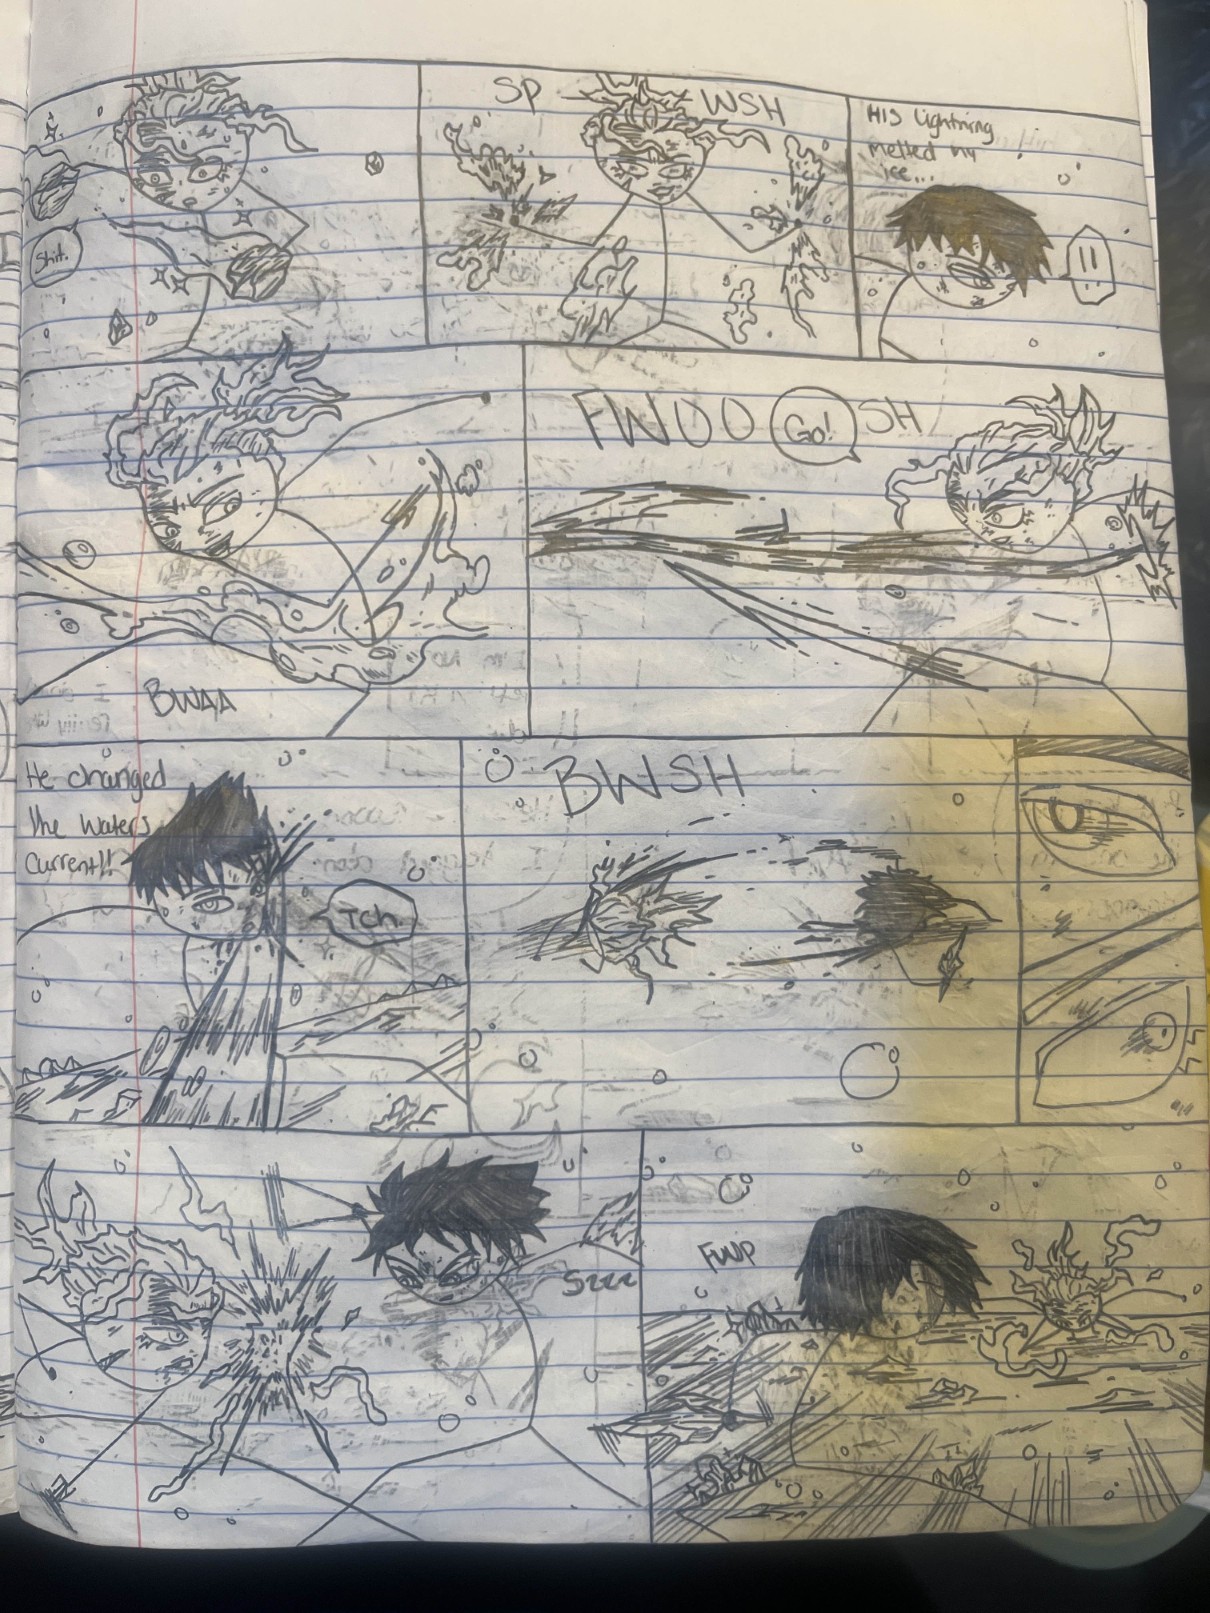 Shit.
SP WSH
His lightning
melted my
ice...
!!
BWAA
FWOO SH
Go!
He changed
the waters
current!!
Tch
BWSH
Szzz
FWP